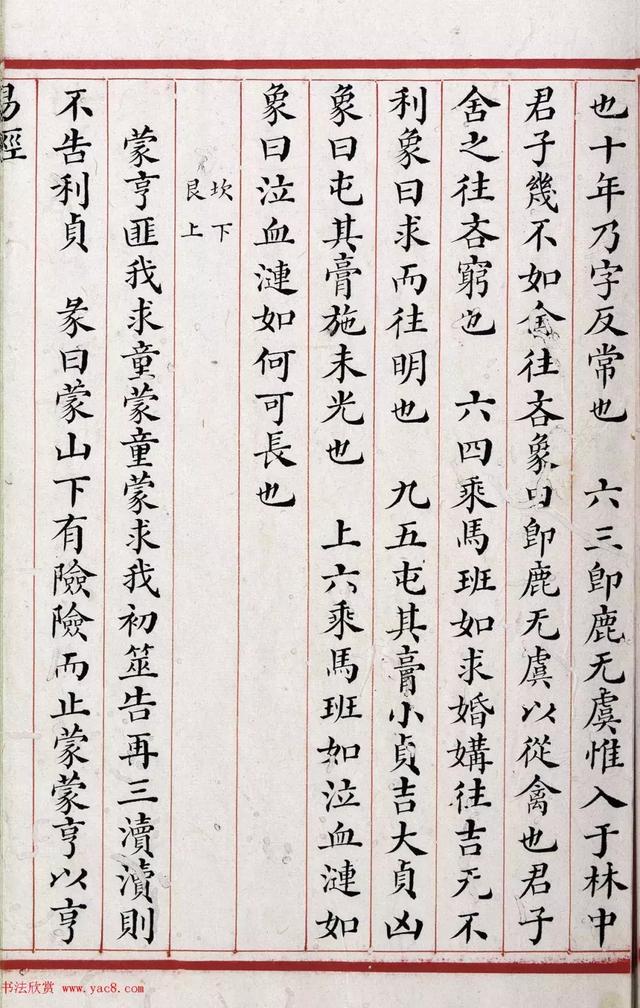 也十年乃字反常也　六三即鹿无虞惟入于林中
君子幾不如舍往吝象曰即鹿无虞以從禽也君子
舍之往吝窮也　六四乘馬班如求婚媾往吉无不
利象曰求而往明也　九五屯其膏小貞吉大貞凶
象曰屯其膏施未光也　上六乘馬班如泣血漣如
象曰泣血漣如何可長也
坎下
艮上
蒙亨匪我求童蒙童蒙求我初筮告再三瀆瀆則
不告利貞　彖曰蒙山下有險險而止蒙蒙亨以亨
易經
书法欣赏 www.yac8.com